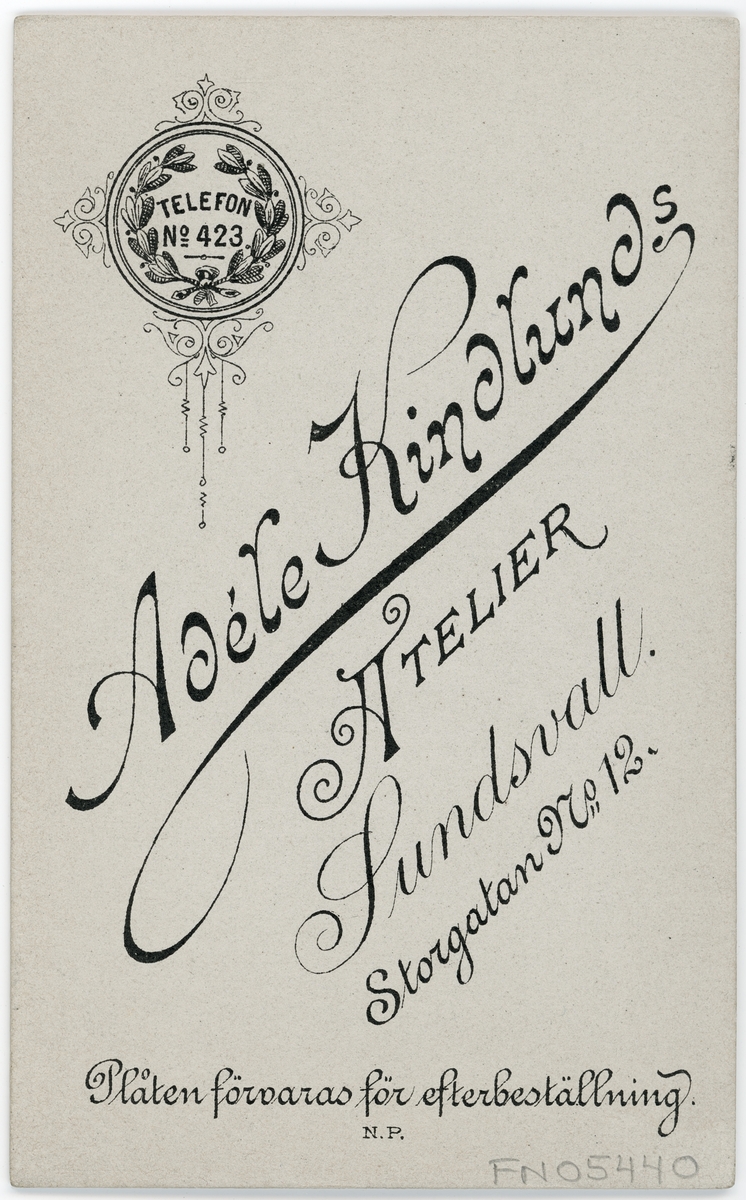 TELEFON
No 423.
Adéle Kindlunds
ATELIER
Sundsvall.
Storgatan No 12.
Plåten förvaras för efterbeställning.
N.P.
FNO5440